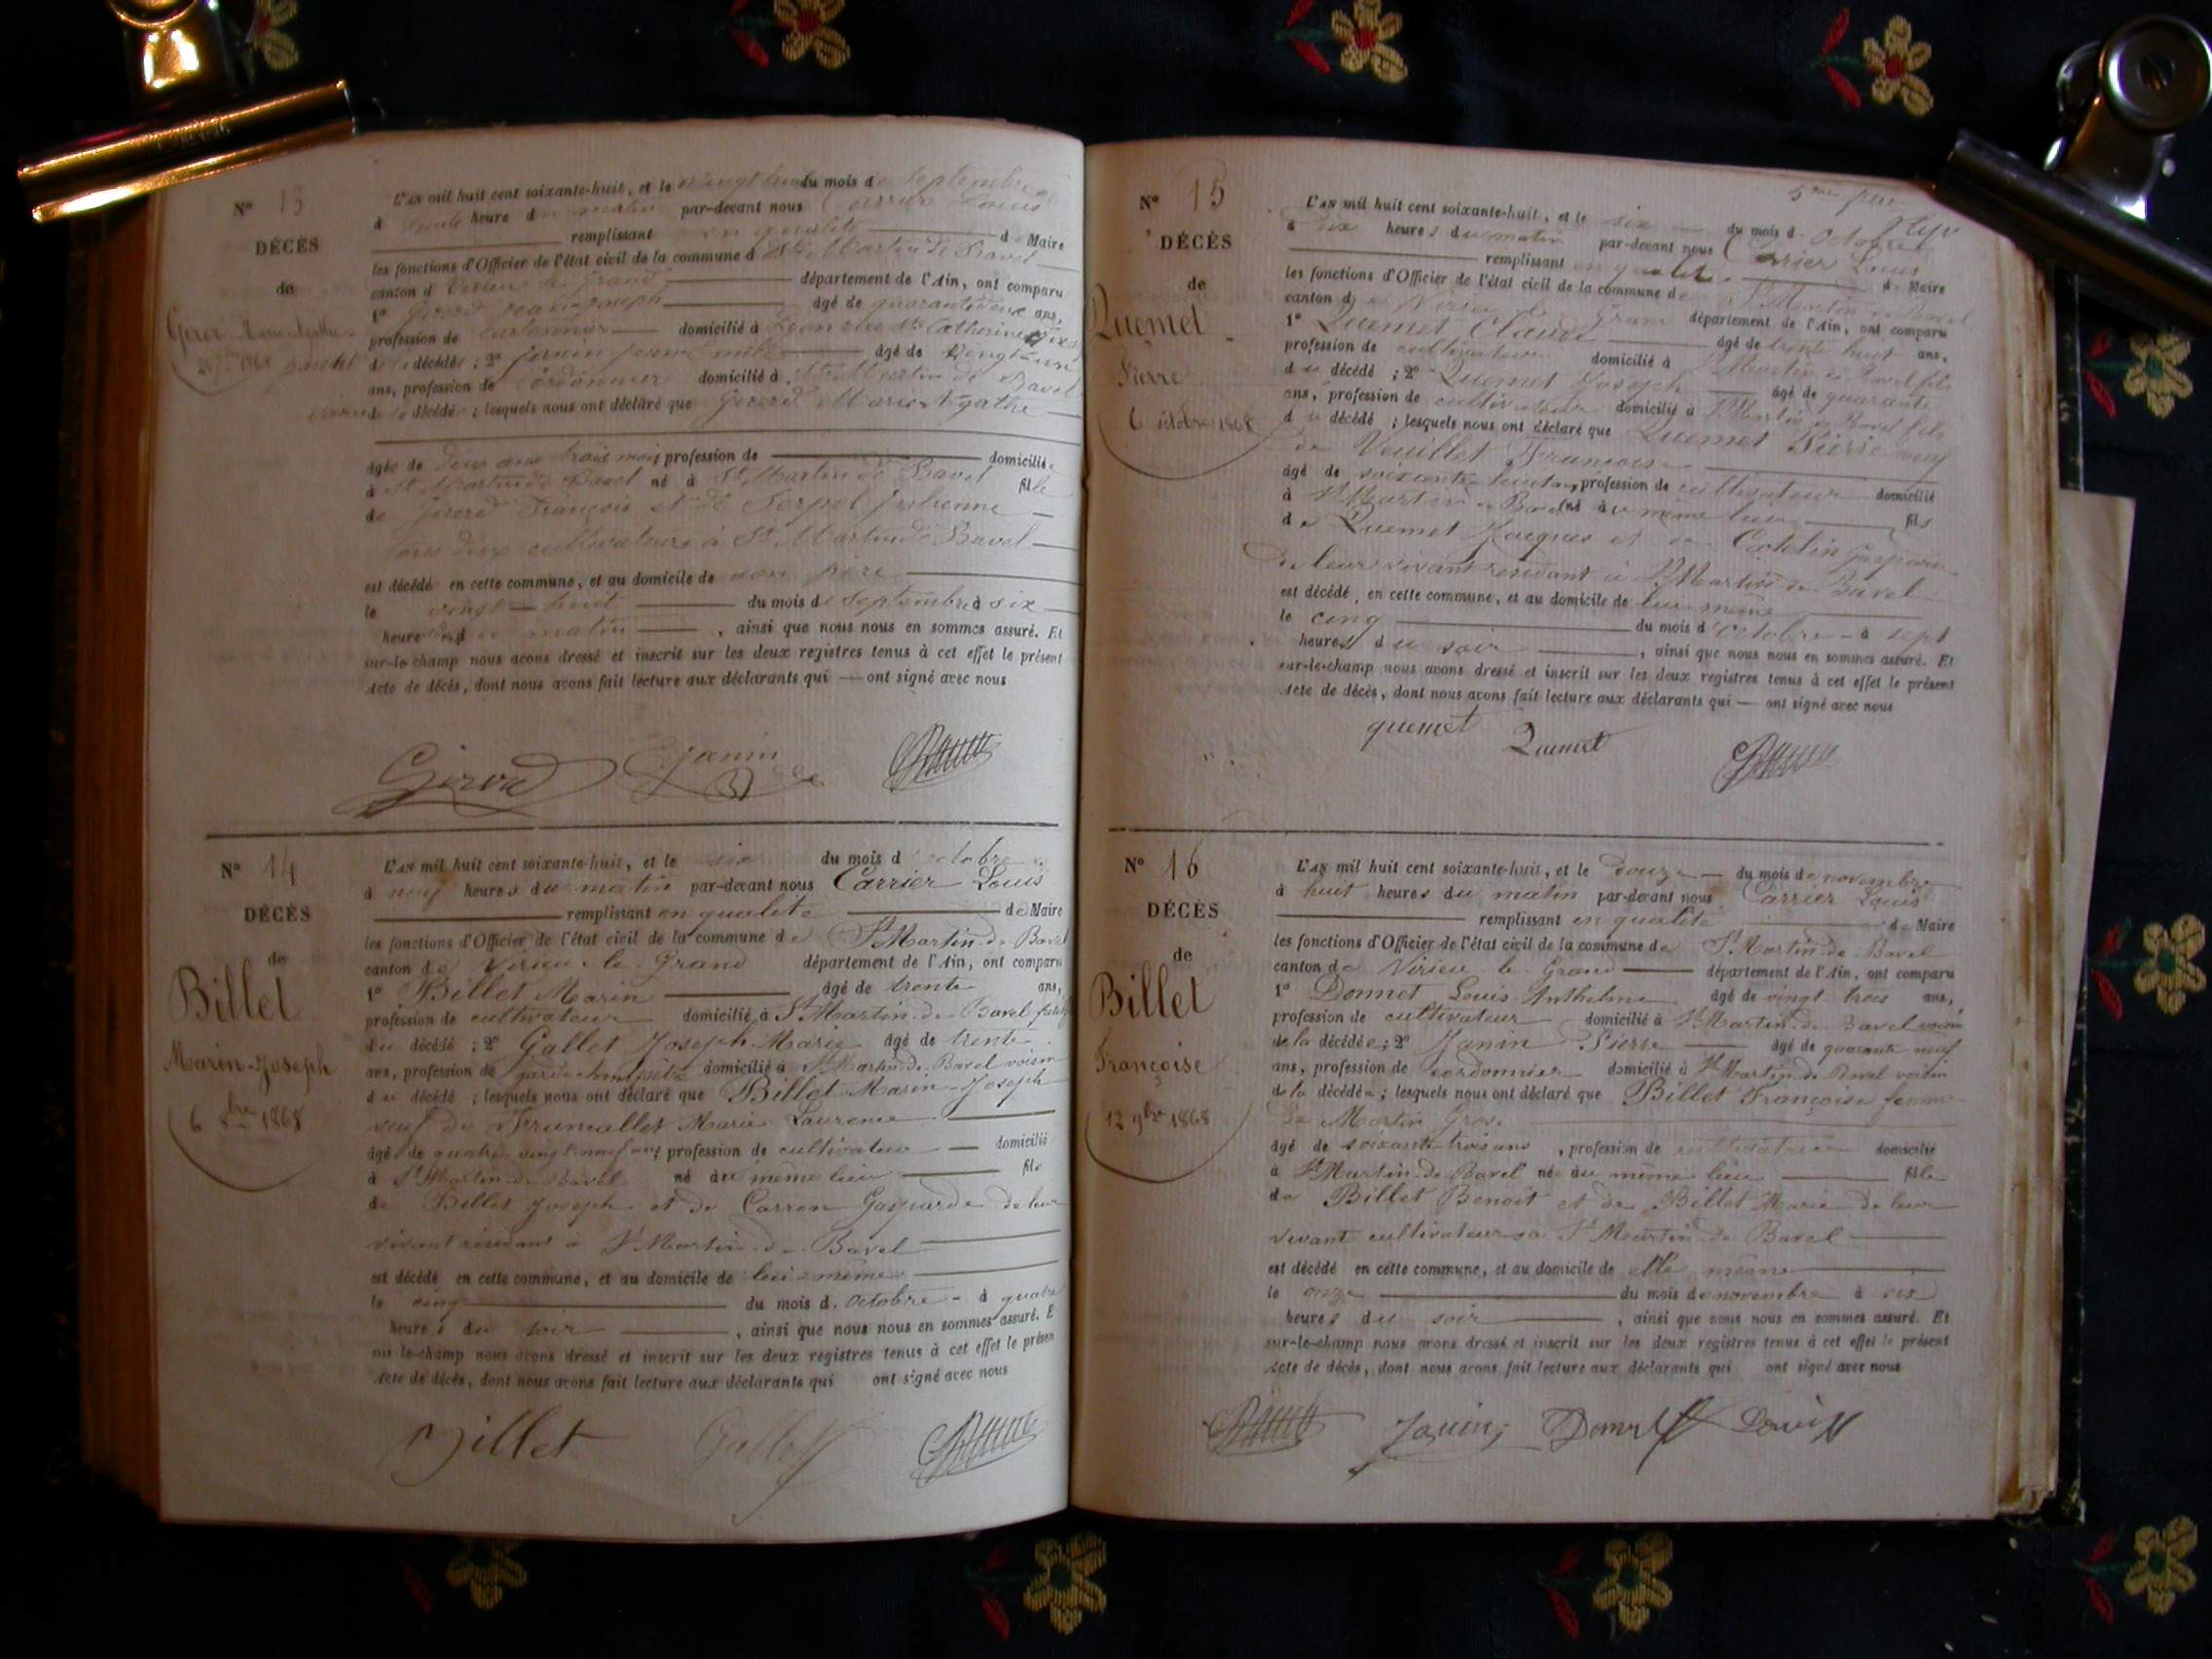 N° 13
DÉCÈS
de
L'AN mil huit cent soixante-huit, et le vingt huit du mois de Septembre
à heure du matin par-devant nous Carrier Louis
remplissant en qualité de Maire
les fonctions d'Officier de l'état civil de la commune de St Martin de Bavel
canton de Virieu le Grand département de l'Ain, ont comparu
1° Girerd Jean Joseph âgé de quarante deux ans,
profession de domicilié à Lyon rue Ste Catherine
de décédé ; 2° âgé de vingt un
ans, profession de Cordonnier domicilié à St Martin de Bavel
décédé ; lesquels nous ont déclaré que Girerd Marie Agathe
âgée de deux ans trois mois profession de domiciliée
à St Martin de Bavel né à St Martin de Bavel fille
de Girerd François et de Serpol Julienne
tous deux cultivateurs à St Martin de Bavel
est décédé en cette commune, et au domicile de son père
le vingt huit du mois de Septembre à six
heures du matin , ainsi que nous nous en sommes assuré. Et
sur-le-champ nous avons dressé et inscrit sur les deux registres tenus à cet effet le présent
Acte de décès, dont nous avons fait lecture aux déclarants qui — ont signé avec nous
Girerd Janin
N° 14
DÉCÈS
de
Billet
Marin-Joseph
6 8bre 1868
L'AN mil huit cent soixante-huit, et le six du mois d'octobre
à neuf heures du matin par-devant nous Carrier Louis
remplissant en qualité de Maire
les fonctions d'Officier de l'état civil de la commune de St Martin-de-Bavel
canton de Virieu-le-Grand département de l'Ain, ont comparu
1° Billet Marin âgé de trente ans,
profession de cultivateur domicilié à St Martin-de-Bavel
du décédé ; 2° Gallet Joseph-Marie âgé de trente
ans, profession de garde champêtre domicilié à St Martin-de-Bavel voisin
du décédé ; lesquels nous ont déclaré que Billet Marin-Joseph
veuf de Marie Laurence
âgé de quatre vingt neuf ans, profession de cultivateur — domicilié
à St Martin-de-Bavel né au même lieu fils
de Billet Joseph et de Carron Gasparde de leur
vivant résidant à St Martin-de-Bavel
est décédé en cette commune, et au domicile de lui-même
le cinq du mois d'Octobre - à quatre
heures du soir , ainsi que nous nous en sommes assuré. E
sur-le-champ nous avons dressé et inscrit sur les deux registres tenus à cet effet le présen
Acte de décès, dont nous avons fait lecture aux déclarants qui ont signé avec nous
Billet Gallet
N° 15
DÉCÈS
de
Quemet
Pierre
6 octobre 1868
L'AN mil huit cent soixante-huit, et le six du mois d'Octobre
à heures du matin par-devant nous Carrier Louis
remplissant en qualité de Maire
les fonctions d'Officier de l'état civil de la commune de St Martin de Bavel
canton de Virieu le Grand département de l'Ain, ont comparu
1° Quemet Claude âgé de trente huit ans,
profession de cultivateur domicilié à St Martin de Bavel fils
du décédé ; 2° Quemet Joseph âgé de quarante
ans, profession de cultivateur domicilié à St Martin de Bavel fils
du décédé ; lesquels nous ont déclaré que Quemet Pierre veuf
de Veuillet Françoise
âgé de soixante-huit ans, profession de cultivateur domicilié
à St Martin de Bavel né au même lieu fils
de Quemet Jacques et de Catelin
de leur vivant résidant à St Martin de Bavel
est décédé en cette commune, et au domicile de lui même
le cinq du mois d'Octobre - à sept
heures du soir , ainsi que nous nous en sommes assuré. Et
sur-le-champ nous avons dressé et inscrit sur les deux registres tenus à cet effet le présent
Acte de décès, dont nous avons fait lecture aux déclarants qui — ont signé avec nous
quemet Quemet
N° 16
DÉCÈS
de
Billet
Françoise
12 9bre 1868
L'AN mil huit cent soixante-huit, et le douze — du mois de novembre
à huit heures du matin par-devant nous Carrier Louis
remplissant en qualité de Maire
les fonctions d'Officier de l'état civil de la commune de St Martin-de-Bavel
canton de Virieu le Grand département de l'Ain, ont comparu
1° Donnet Louis Anthelme âgé de vingt trois ans,
profession de cultivateur domicilié à St Martin-de-Bavel voisin
de la décédée ; 2° Janin Pierre âgé de quarante neuf
ans, profession de cordonnier domicilié à St Martin-de-Bavel voisin
de la décédée ; lesquels nous ont déclaré que Billet Françoise femme
de Martin Gros
âgé de soixante-trois ans , profession de cultivatrice domicilié
à St Martin-de-Bavel né au même lieu fille
de Billet Benoît et de Billet Marie de leur
vivant cultivateurs à St Martin-de-Bavel
est décédé en cette commune, et au domicile de elle même
le onze du mois de novembre à six
heures du soir , ainsi que nous nous en sommes assuré. Et
sur-le-champ nous avons dressé et inscrit sur les deux registres tenus à cet effet le présent
Acte de décès, dont nous avons fait lecture aux déclarants qui ont signé avec nous
Janin Donnet Louis